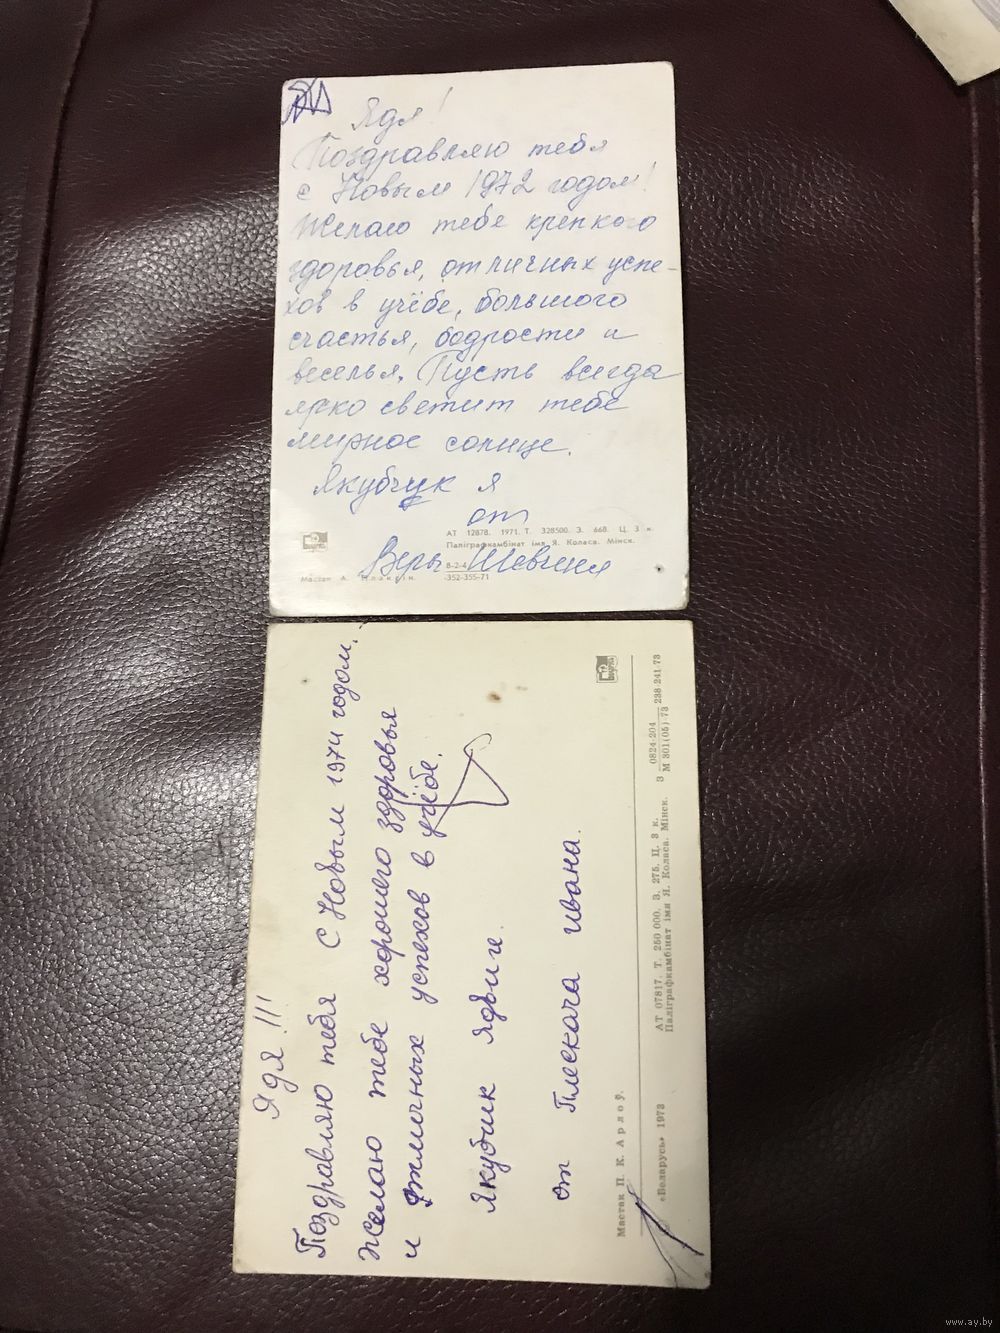 Ядя!
Поздравляю тебя
с Новым 1972 годом!
Желаю тебе крепкого
здоровья, отличных успе-
хов в учёбе, большого
счастья, бодрости и
веселья. Пусть всегда
ярко светит тебе
мирное солнце.
Якубчук Я
от
Веры
АТ 12878. 1971. Т. 328500. З. 668. Ц. 3 к.
Паліграфкамбінат імя Я. Коласа. Мінск.
8-2-4
-352-355-71
Мастак А.
Ядя!!!
Поздравляю тебя с Новым 1974 годом.
Желаю тебе хорошего здоровья
и отличных успехов в учёбе.
Якубик Ядвиге.
от Плескача Ивана.
Мастак П. К. Арлоў.
«Беларусь» 1973
АТ 07817. Т. 250 000. З. 275. Ц. 3 к.
Паліграфкамбінат імя Я. Коласа. Мінск.
З 0824-204 238-241-73
М 301(05) 73
www.ay.by